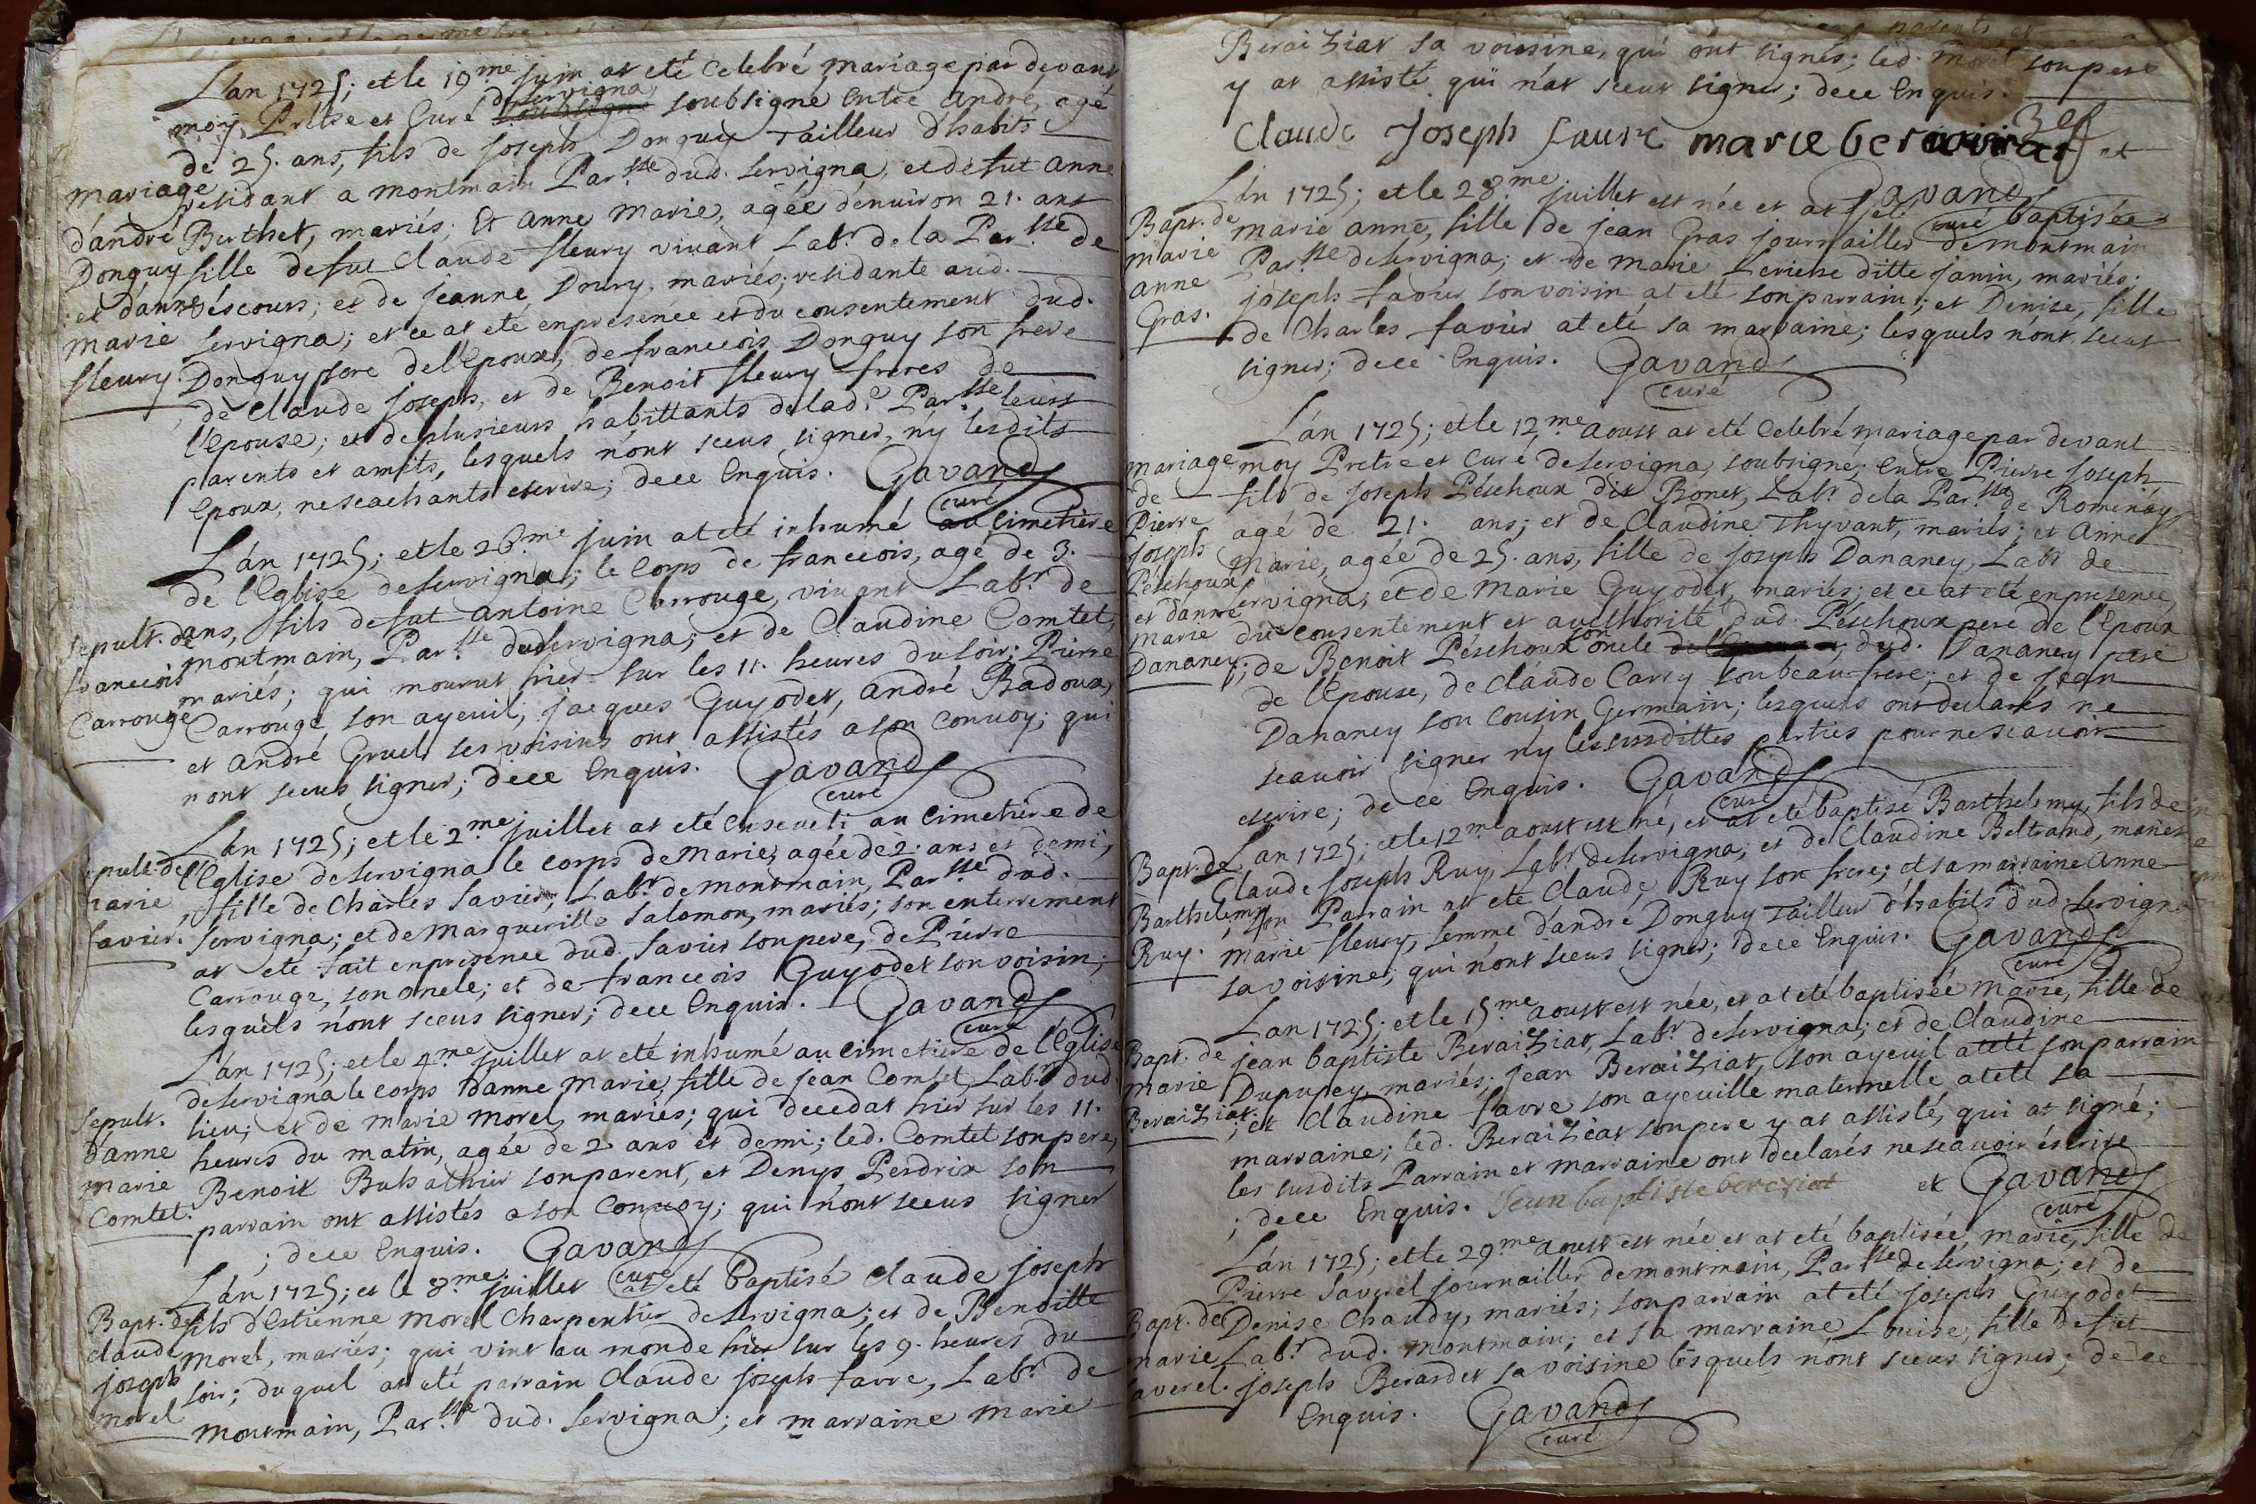 Lan 1725; et le 19.me Juin at eté Celebré mariage par devant
moy Pretre et Curé de servigna soubsigné Entre andré, agé
de 25. ans, fils de Joseph Donguy Tailleur d'habits
mariage residant a montmain Par.sse dud. servigna, et defut anne
d'andré Berthet, mariés; Et anne marie, agée denuiron 21. ans
Donguy fille defut Claude fleury vivant Lab.r de la Par.sse de
et d'anne véscours; et de jeanne Doury. mariés; residante aud.
marie servigna; et ce at eté enpresence et du consentement dud.
fleury. Donguy pere de l'Epoux, de francois Donguy son frere
de Claude joseph, et de Benoit fleury freres de
l'Epouse; et de plusieurs habittants de lad.e Par.sse leurs
parents et amits, lesquels n'ont sceus signer, ny lesdits
Epoux, ne scachants escrire; dece Enquis. Gavand
curé
Lán 1725; et le 26.me juin at eté inhumé au Cimetière
de l'Eglise de servigna; le Corps de francois, agé de 3.
sepult. de ans, fils defut antoine Carrouge, vivant Lab.r de
francois montmain, Par.sse dud servigna; et de Claudine Comtet,
Carrouge mariés; qui mourut hier sur les 11. heures du soir; Pierre
Carrouge, son ayeuil; jacques Guyodet, andré Badoux,
et andré Gruel ses voisins ont assistés a son Convoy; qui
nont sceus signer; dece Enquis. Gavand
curé
Lán 1725; et le 2.me juillet at eté enseveli au Cimetière de
sepult. de l'Eglise de servigna le corps de Marie, agée de 2. ans et demi,
marie fille de Charles favier, Lab.r de montmain, Par.sse dud.
favier. servigna; et de marguerille salomon, mariés; son enterrement
at eté fait enpresence dud. favier son pere, de Pierre
Carrouge, son oncle; et de francois Guyodet son voisin;
lesquels n'ont sceus signer; dece Enquis. Gavand
curé
Lán 1725; et le 4.me juillet at eté inhumé au cimetière de l'Eglise
de servigna le corps danne Marie, fille de jean Comtet, Lab.r dud.
sepult. lieu; et de marie morel, mariés; qui decedat hier sur les 11.
d'anne heures du matin, agée de 2 ans et demi; led. Comtet son pere,
marie Benoit son parent, et Denys Perdrix son
Comtet. parrain ont assistés a son Convoy; qui n'ont sceus signer
; dece Enquis. Gavand
curé
Lán 1725; et le 8.me juillet at eté baptisé Claude joseph
Bapt. de fils d'Estienne Morel Charpentier de servigna; et de Benoitte
claude Morel, mariés; qui vint au monde hier sur les 9. heures du
joseph soir; duquel at eté parrain Claude joseph favre, Lab.r de
morel montmain, Par.sse dud. servigna; et marraine marie
Beraiziat sa voisine, qui ont signés; led. morel son pere
y at assisté qui n'at sceut signer; dece Enquis.
Claude Joseph faure marie beraiziat et
Gavand
curé
Lán 1725; et le 28.me juillet est née et at eté baptisée
Bapt. de marie anne, fille de jean Gras journaillier de montmain
marie Par.sse de servigna; et de marie ditte janin, mariés;
anne joseph favier son voisin at eté son parrain; et Denise, fille
Gras. de Charles favier at eté sa marraine; lesquels n'ont sceut
signer; dece Enquis. Gavand
curé
Lán 1725; et le 12.me aoust at eté Celebré mariage par devant
mariage moy Pretre et Curé de servigna soubsigné; Entre Pierre joseph
de fils de joseph Péschoux dit Bonet, Lab.r de la Par.sse de Romenay
Pierre agé de 21. ans; et de Claudine Thyvant, mariés; et Anne
joseph marie, agée de 25. ans, fille de joseph Dananey, Lab.r de
Péschoux servigna, et de Marie Guyodet, mariés; et ce at eté enpresence,
et danne du consentement et authorité dud. Péschoux pere de l'Epoux
marie ; de Benoit Péschoux son oncle dud. Dananey pere
Dananey. de l'Epouse, de Claude Carry son beau-frere; et de jean
Dananey son Cousin Germain; lesquels ont declarés ne
scavoir signer ny les susdittes parties pour ne scavoir
escrire; de ce Enquis. Gavand
curé
Lan 1725; et le 12.me aoust est né, et at eté baptisé Barthelemy, fils de
Bapt. de Claude joseph Ruy, Lab.r de servigna; et de Claudine Beltrand, mariés
Barthelemy son Parrain at eté Claude Ruy son frere; et sa marraine anne
Ruy. marie fleury, femme d'andré Donguy Tailleur d'habits dud. servigna
sa voisine; qui n'ont sceus signer; dece Enquis. Gavand
curé
Lan 1725; et le 15.me aoust est née, et at eté baptisée marie, fille de
Bapt. de jean baptiste Beraiziat, Lab.r de servigna; et de Claudine
marie Dupupey, mariés; jean Beraiziat, son ayeuil at eté son parrain
Beraiziat. ; et Claudine favre son ayeuille maternelle at eté sa
marraine; led. Beraiziat son pere y at assisté, qui at signé;
les susdits Parrain et marraine ont declarés ne scavoir éscrire
; dece Enquis. Jean baptiste bereziat et Gavand
curé
Lán 1725; et le 29.me aoust est née et at eté baptisée, marie, fille de
Pierre saverel journaillier de montmain, Par.sse de servigna; et de
Bapt. de Denise Chaudy, mariés; son parrain at eté joseph Guyodet
marie Lab.r dud. montmain; et sa marraine Louise, fille defut
saverel. joseph Berardet sa voisine lesquels n'ont sceus signer; de ce
Enquis. Gavand
curé